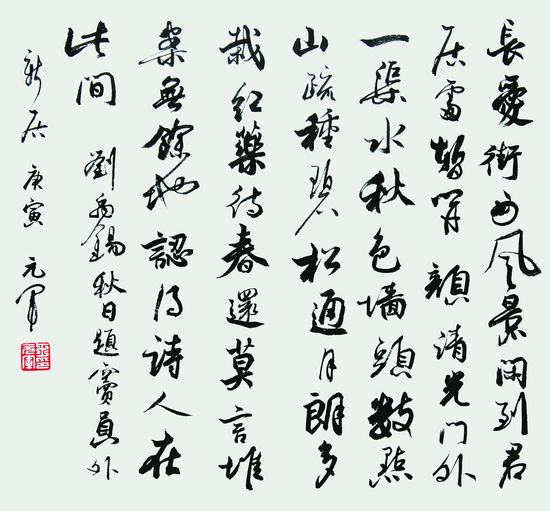 長愛街西風景閑到君
居處暫開顏清光門外
一渠水秋色墙頭數點
山疏種碧松通月朗多
栽紅藥待春還莫言堆
案無餘地認得詩人在
此間 劉禹錫秋日題竇員外
新居 庚寅 元軍